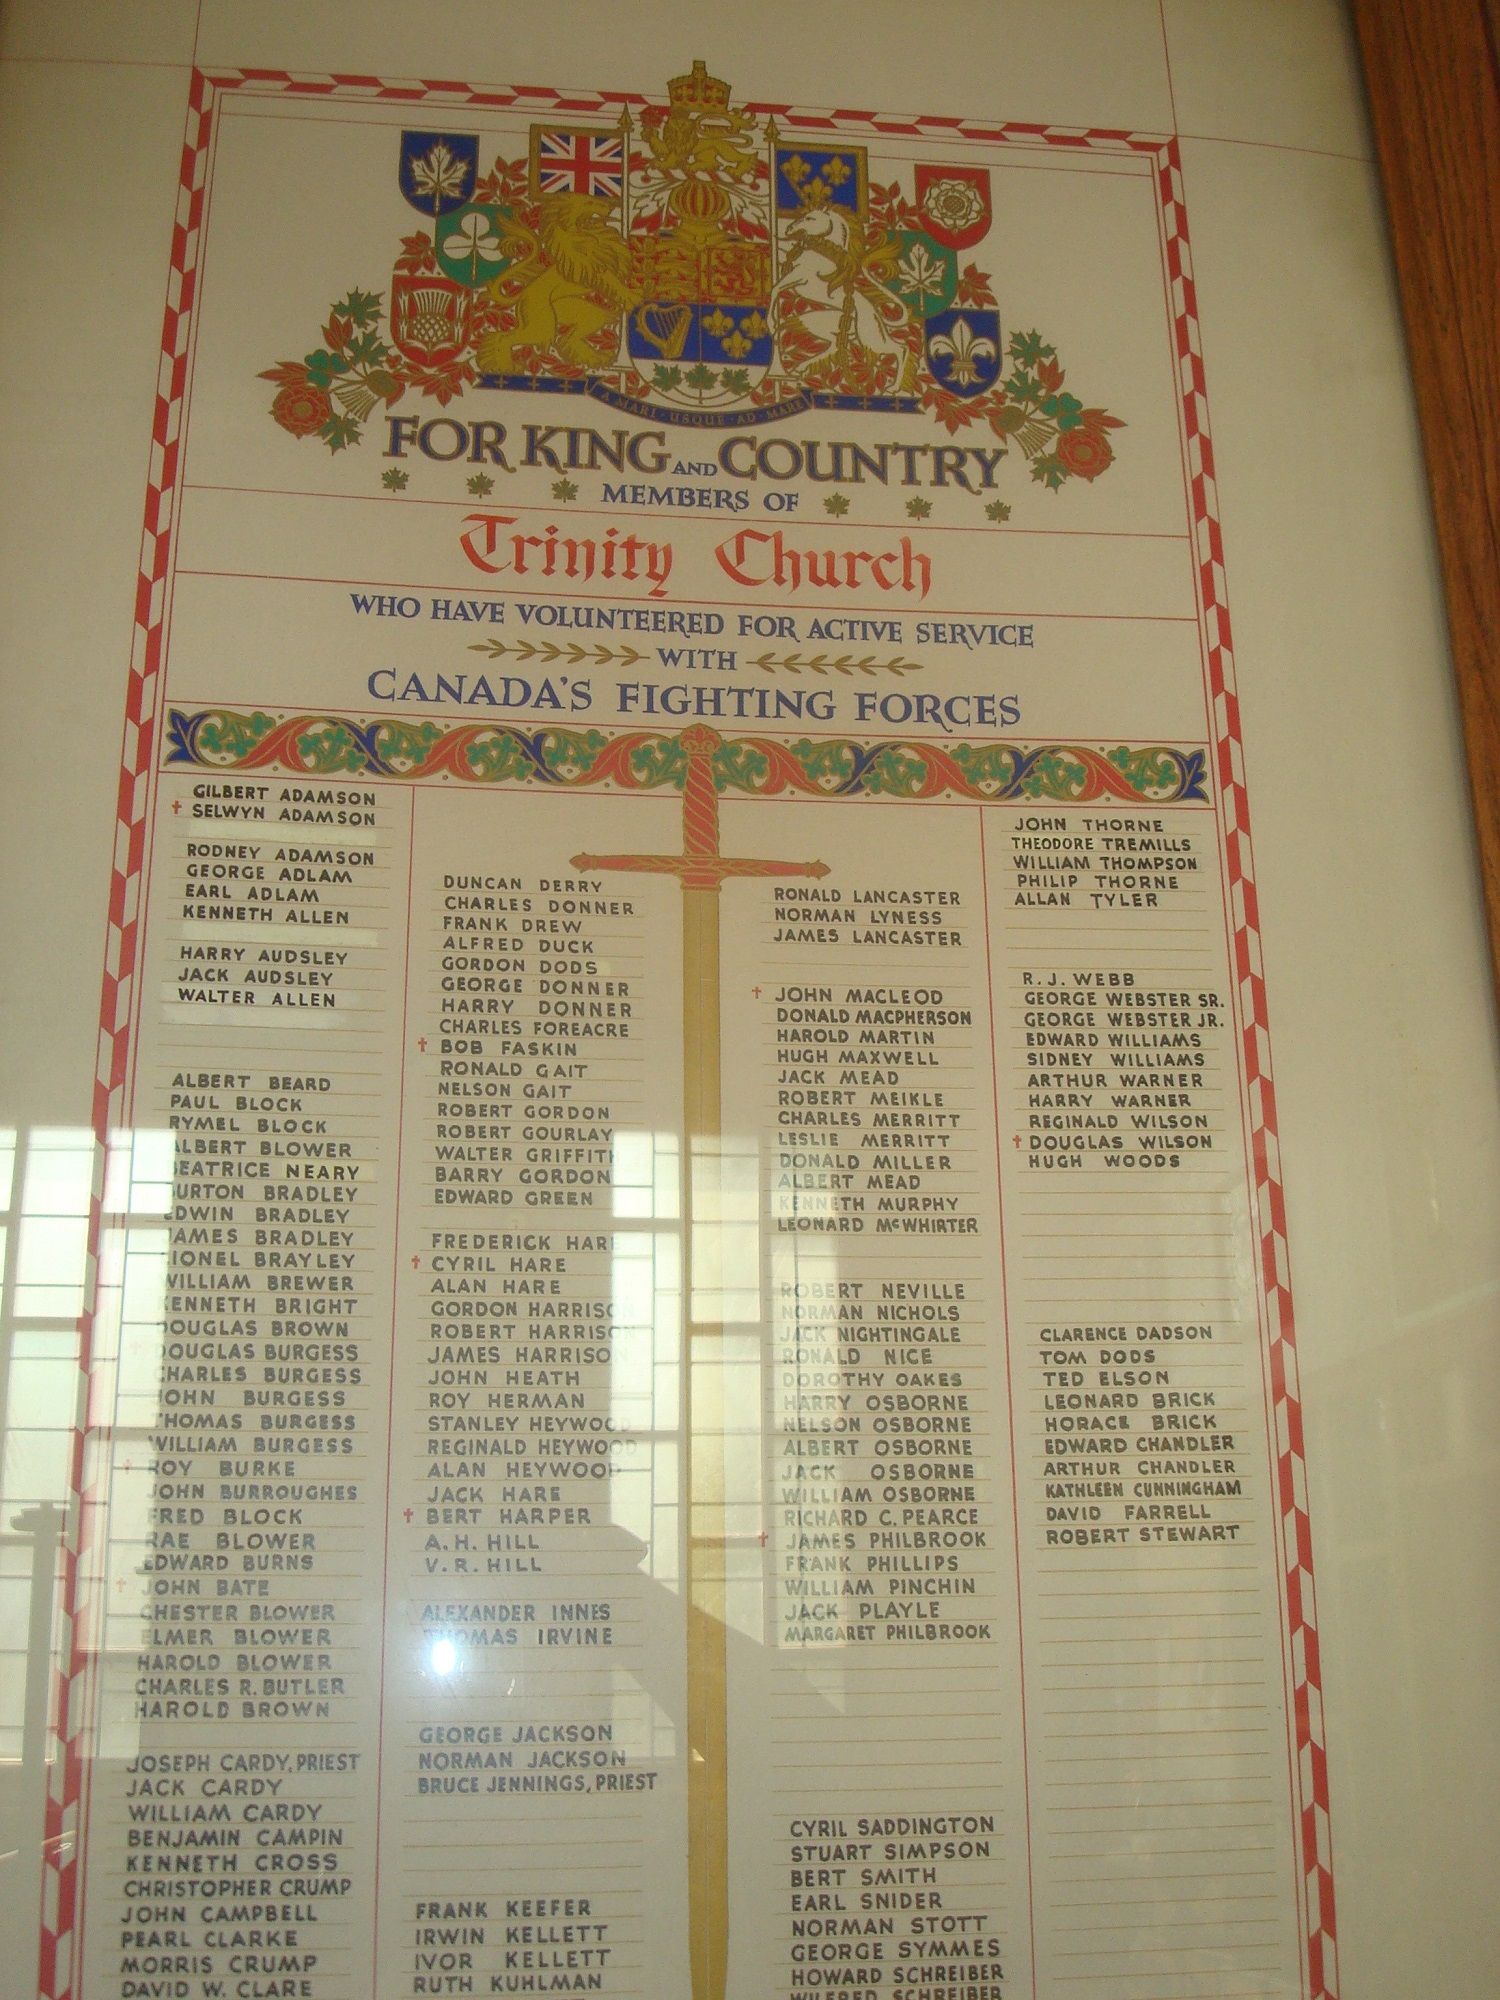 A MARI · USQUE · AD · MARE
FOR KING AND COUNTRY
MEMBERS OF
Trinity Church
WHO HAVE VOLUNTEERED FOR ACTIVE SERVICE
WITH
CANADA'S FIGHTING FORCES
GILBERT ADAMSON
† SELWYN ADAMSON
RODNEY ADAMSON
GEORGE ADLAM
EARL ADLAM
KENNETH ALLEN
HARRY AUDSLEY
JACK AUDSLEY
WALTER ALLEN
ALBERT BEARD
PAUL BLOCK
RYMEL BLOCK
ALBERT BLOWER
BEATRICE NEARY
BURTON BRADLEY
EDWIN BRADLEY
JAMES BRADLEY
LIONEL BRAYLEY
WILLIAM BREWER
KENNETH BRIGHT
DOUGLAS BROWN
† DOUGLAS BURGESS
CHARLES BURGESS
JOHN BURGESS
THOMAS BURGESS
WILLIAM BURGESS
† ROY BURKE
JOHN BURROUGHES
FRED BLOCK
RAE BLOWER
EDWARD BURNS
† JOHN BATE
CHESTER BLOWER
ELMER BLOWER
HAROLD BLOWER
CHARLES R. BUTLER
HAROLD BROWN
JOSEPH CARDY, PRIEST
JACK CARDY
WILLIAM CARDY
BENJAMIN CAMPIN
KENNETH CROSS
CHRISTOPHER CRUMP
JOHN CAMPBELL
PEARL CLARKE
MORRIS CRUMP
DAVID W. CLARE
DUNCAN DERRY
CHARLES DONNER
FRANK DREW
ALFRED DUCK
GORDON DODS
GEORGE DONNER
HARRY DONNER
CHARLES FOREACRE
† BOB FASKIN
RONALD GAIT
NELSON GAIT
ROBERT GORDON
ROBERT GOURLAY
WALTER GRIFFITH
BARRY GORDON
EDWARD GREEN
FREDERICK HARE
† CYRIL HARE
ALAN HARE
GORDON HARRISON
ROBERT HARRISON
JAMES HARRISON
JOHN HEATH
ROY HERMAN
STANLEY HEYWOOD
REGINALD HEYWOOD
ALAN HEYWOOD
JACK HARE
† BERT HARPER
A. H. HILL
V. R. HILL
ALEXANDER INNES
THOMAS IRVINE
GEORGE JACKSON
NORMAN JACKSON
BRUCE JENNINGS, PRIEST
FRANK KEEFER
IRWIN KELLETT
IVOR KELLETT
RUTH KUHLMAN
RONALD LANCASTER
NORMAN LYNESS
JAMES LANCASTER
† JOHN MACLEOD
DONALD MACPHERSON
HAROLD MARTIN
HUGH MAXWELL
JACK MEAD
ROBERT MEIKLE
CHARLES MERRITT
LESLIE MERRITT
DONALD MILLER
ALBERT MEAD
KENNETH MURPHY
LEONARD McWHIRTER
ROBERT NEVILLE
NORMAN NICHOLS
JACK NIGHTINGALE
RONALD NICE
DOROTHY OAKES
HARRY OSBORNE
NELSON OSBORNE
ALBERT OSBORNE
JACK OSBORNE
WILLIAM OSBORNE
RICHARD C. PEARCE
† JAMES PHILBROOK
FRANK PHILLIPS
WILLIAM PINCHIN
JACK PLAYLE
MARGARET PHILBROOK
CYRIL SADDINGTON
STUART SIMPSON
BERT SMITH
EARL SNIDER
NORMAN STOTT
GEORGE SYMMES
HOWARD SCHREIBER
WILFRED SCHREIBER
JOHN THORNE
THEODORE TREMILLS
WILLIAM THOMPSON
PHILIP THORNE
ALLAN TYLER
R. J. WEBB
GEORGE WEBSTER SR.
GEORGE WEBSTER JR.
EDWARD WILLIAMS
SIDNEY WILLIAMS
ARTHUR WARNER
HARRY WARNER
REGINALD WILSON
† DOUGLAS WILSON
HUGH WOODS
CLARENCE DADSON
TOM DODS
TED ELSON
LEONARD BRICK
HORACE BRICK
EDWARD CHANDLER
ARTHUR CHANDLER
KATHLEEN CUNNINGHAM
DAVID FARRELL
ROBERT STEWART